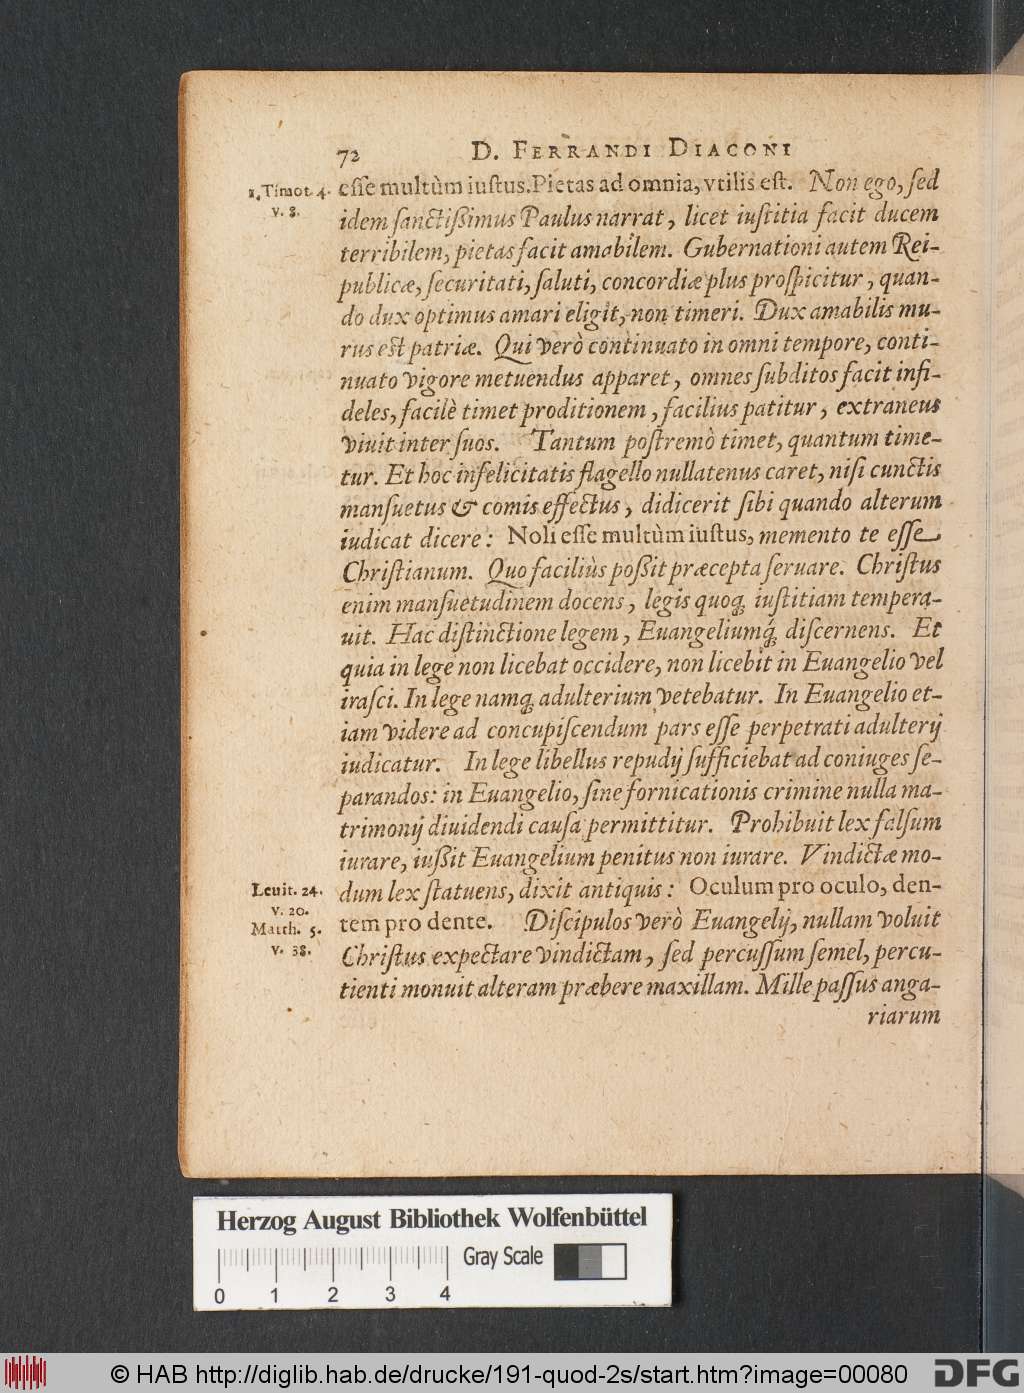 72 D. FERRANDI DIACONI
1. Timot. 4. v. 8.
eſſe multùm iuſtus. Pietas ad omnia, vtilis eſt. Non ego, ſed
idem ſanctißimus Paulus narrat, licet iuſtitia facit ducem
terribilem, pietas facit amabilem. Gubernationi autem Rei-
publicæ, ſecuritati, ſaluti, concordiæ plus proſpicitur, quan-
do dux optimus amari eligit, non timeri. Dux amabilis mu-
rus eſt patriæ. Qui verò continuato in omni tempore, conti-
nuato vigore metuendus apparet, omnes ſubditos facit infi-
deles, facilè timet proditionem, facilius patitur, extraneus
viuit inter ſuos. Tantum poſtremò timet, quantum time-
tur. Et hoc infelicitatis flagello nullatenus caret, niſi cunctis
manſuetus & comis effectus, didicerit ſibi quando alterum
iudicat dicere: Noli eſſe multùm iuſtus, memento te eſſe
Chriſtianum. Quo faciliùs poßit præcepta ſeruare. Chriſtus
enim manſuetudinem docens, legis quoq; iuſtitiam tempera-
uit. Hac diſtinctione legem, Euangeliumq́; diſcernens. Et
quia in lege non licebat occidere, non licebit in Euangelio vel
iraſci. In lege namq; adulterium vetebatur. In Euangelio et-
iam videre ad concupiſcendum pars eſſe perpetrati adulterij
iudicatur. In lege libellus repudij ſufficiebat ad coniuges ſe-
parandos: in Euangelio, ſine fornicationis crimine nulla ma-
trimonij diuidendi cauſa permittitur. Prohibuit lex falſum
iurare, iußit Euangelium penitus non iurare. Vindictæ mo-
Leuit. 24. v. 20.
dum lex ſtatuens, dixit antiquis: Oculum pro oculo, den-
Matth. 5. v. 38.
tem pro dente. Diſcipulos verò Euangelij, nullam voluit
Chriſtus expectare vindictam, ſed percuſſum ſemel, percu-
tienti monuit alteram præbere maxillam. Mille paſſus anga-
riarum
Herzog August Bibliothek Wolfenbüttel
Gray Scale
0 1 2 3 4
© HAB http://diglib.hab.de/drucke/191-quod-2s/start.htm?image=00080
DFG